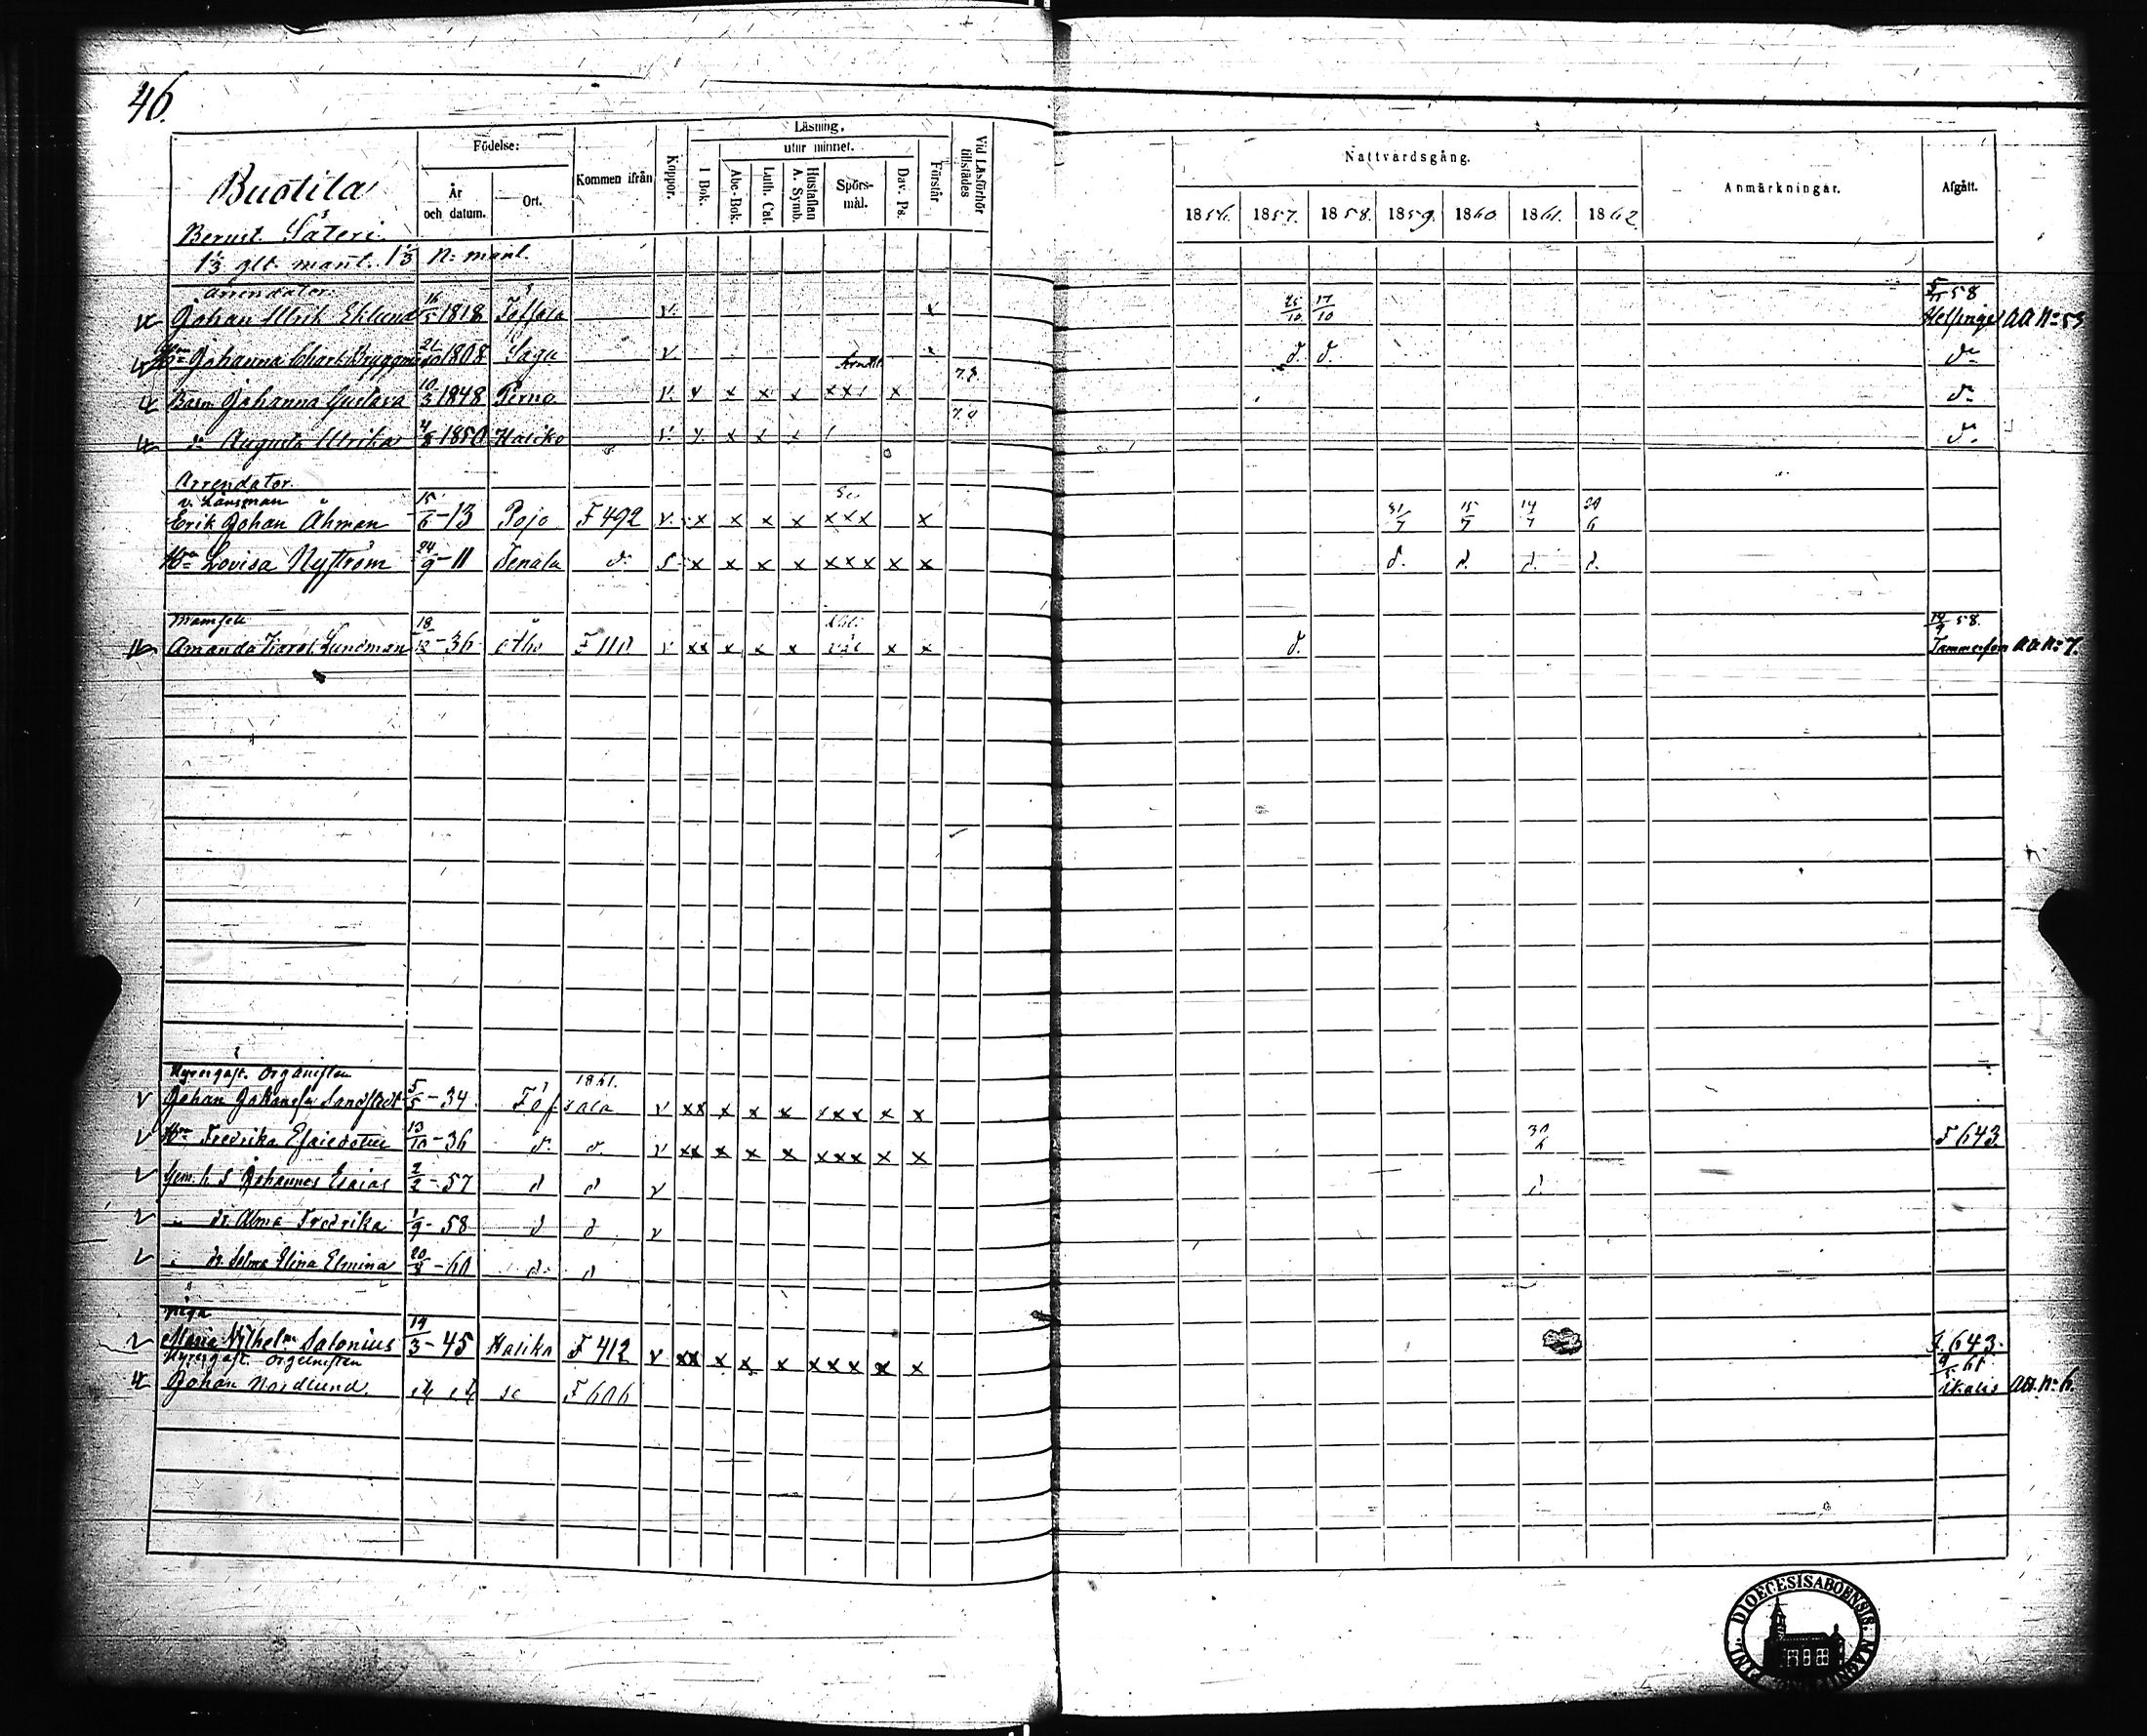 46.
Födelse:
Läsning.
utur minnet.
Kommen ifrån
Koppor.
I Bok.
Abc. Bok.
Luth. Cat.
Hustaflan A. Symb.
Spörs-
mål.
Dav. Ps.
Förstår
Vid Läsförhör tillstädes
År
och datum.
Ort.
Nattvardsgång.
Anmärkningar.
Afgått.
1856. 1857. 1858. 1859. 1860 1861. 1862
Bustila
Bernst. Säteri.
1⅓ glt. mantl. 1⅓ n: mantl.
Arrendator.
Johan Ulrik Eklund 16/5 1818 v. 25/10 17/10 58 Helsinge aa No 53
Hu Johanna Charl. Bryggman 21/10 1808 Sagu v. d. d. do
Barn Johanna Gustava 10/3 1848 Perno v. v x x x x x x do
do Augusta Ulrika 4/8 1850 Haliko v. x x x do
Arrendator.
v. Länsman
Erik Johan Åhman 15/6 - 13 Pojo F 492 v. x x x x x x x x 31/7 15/7 14/7
Hu Lovisa Nyström 24/9 - 11 Tenala do x x x x x x x x x d. d. d. d.
Mamsell
Amanda Lundman 18/12 - 36 Åbo F 110 v xx x x x x x d. 14/9 58. Tammerfors aa No 7.
Hyresgäst. Organisten 1861.
Johan Sandstedt 5/5 - 34 v xx x x x x x x x x
Hu Fredrika 13/10 - 36 do d. v xx x x x x x x x x 30/6 F 643
Johannes Esaias 2/2 - 57 d d v d.
dr. Alma Fredrika 1/9 - 58 d d v
dr. Selma Elina Elmina 20/8 - 60 d d
Piga
Maria Vilhelma Salonius 19/3 - 45 Haliko F 412 v xx x x x x x x x x F. 643.
Hyresgäst. Organisten
Johan Nordlund. F 606 Ikalis aa. No 6.
DIOECESIS ABOENSIS